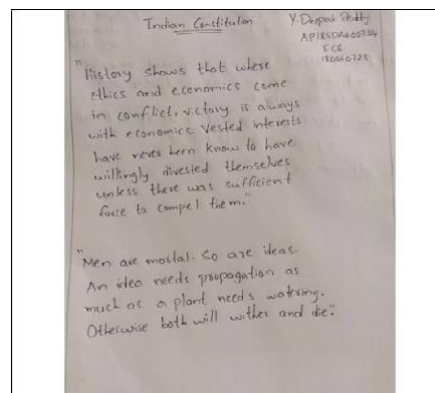 Indian Constituton
Y. Deepak Reddy
ECE
"History shows that where
ethics and economics come
in conflict, victory is always
with economics. Vested interests
have never been know to have
willingly divested themselves
unless there was sufficient
force to compel them."
"Men are mortal. So are ideas.
An idea needs propagation as
much as a plant needs watring.
Otherwise both will wither and die."